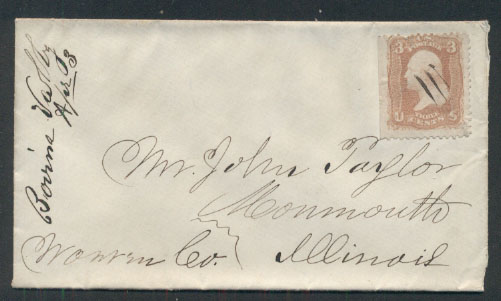 Bovina Valley
Apr 3
3 U.S. 3
POSTAGE
U THREE CENTS S
Mr. John Taylor
Monmouth
Warren Co. Illinois